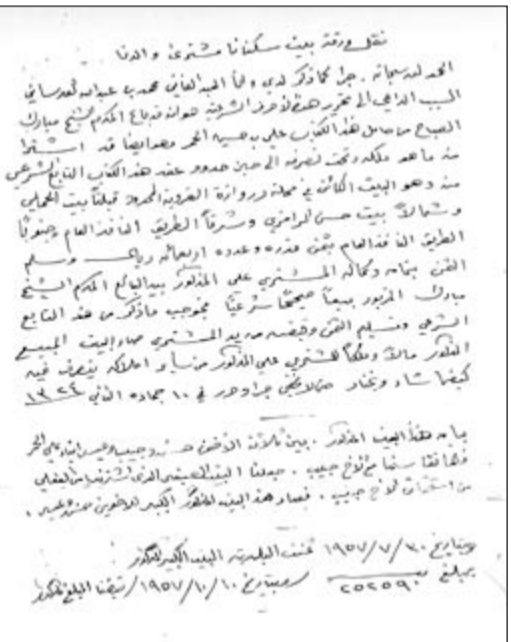 نقل ورقة بيت سكننا مشترى والدنا
الحمد لله سبحانه. جرا كما ذكر لدي وأنا العبد الفاني محمد بن عبدالله العدساني
السبب الداعي الى تحرير هذه الأحرف الشرعية هو انه قد باع المكرم الشيخ مبارك
الصباح من حامل هذا الكتاب علي بن حسين الحر وهو ايضا قد اشترا
منه ما هو ملكه وتحت تصرفه الى حين صدور عقد هذا الكتاب التابع الشرعي
منه وهو البيت الكائن في محلة دروازة العبدالرزاق المحدود قبلتاً بيت
وشمالاً بيت حسن وشرقاً الطريق النافذ العام وجنوباً
الطريق النافذ العام بثمن قدره وعدده اربعمائة ريال وسلم
الثمن بتمامه وكماله المشتري علي المذكور بيد البائع المكرم الشيخ
مبارك المزبور بيعاً صحيحاً شرعياً بموجب ما ذكر من عقد التابع
الشرعي وتسليم الثمن وقبضه من يد المشتري صار البيت المبيع
المذكور مالاً وملكاً للمشتري علي المذكور من سائر املاكه يتصرف فيه
كيفما شاء ويختار حتى لا يخفى جرا وحرر في ١٠ جماده الثاني ١٣٢٤
بما ان هذا البيت المذكور. بين ثلاثة الأخوان حسن وحبيب وعيسى ابناء علي الحر
فاتفقنا مع الأخ حبيب. البيت الذي اشتريناه من
لأخ حبيب. فصار هذا البيت المذكور الكبير للأخوين حسن وعيسى.
وبتاريخ ٣٠/٧/١٩٥٧ ثمنت البلدية البيت الكبير المذكور
بمبلغ ٢٥٢٥٩٠ وبتاريخ ١٠/١٠/١٩٥٧ قبضنا المبلغ المذكور